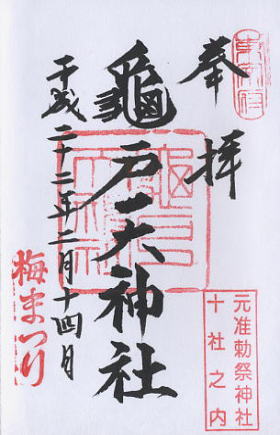 奉拝
龜戸天神社
平成二十二年二月十四日
梅まつり
元准勅祭神社
十社之内